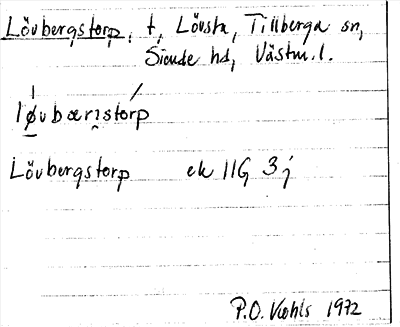 Lövbergstorp, t, Lövsta, Tillberga sn,
Siende hd, Västm. l.
løvbærıstórp
Lövbergstorp ek 11G 3j
P.O. Voohls 1972